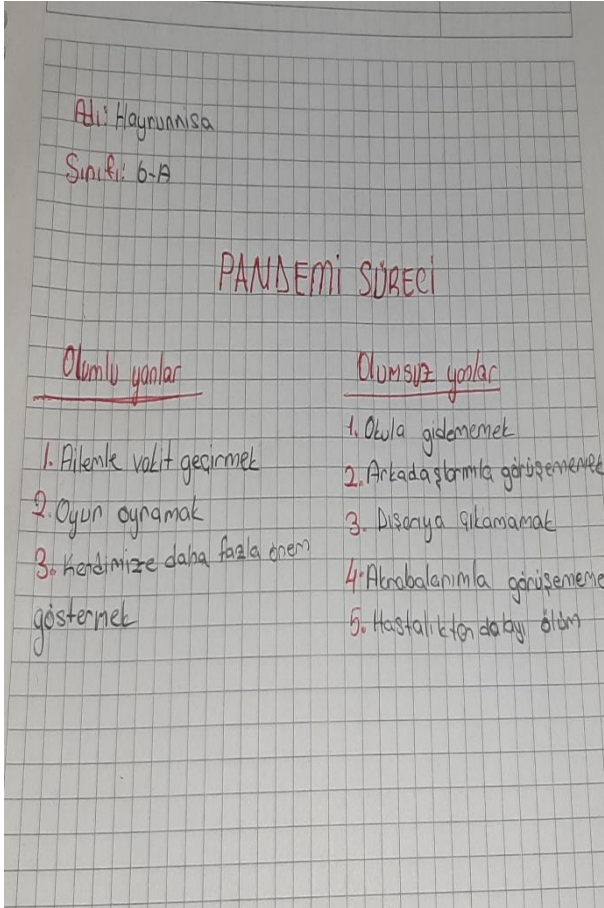 Adı: Hayrunnisa
Sınıfı: 6-A
PANDEMİ SÜRECİ
Olumlu yanlar
1. Ailemle vakit geçirmek
2. Oyun oynamak
3. Kendimize daha fazla önem
göstermek
Olumsuz yanlar
1. Okula gidememek
2. Arkadaşlarımla görüşememek
3. Dışarıya çıkamamak
4. Akrabalarımla görüşememe
5. Hastalıktan dolayı ölüm